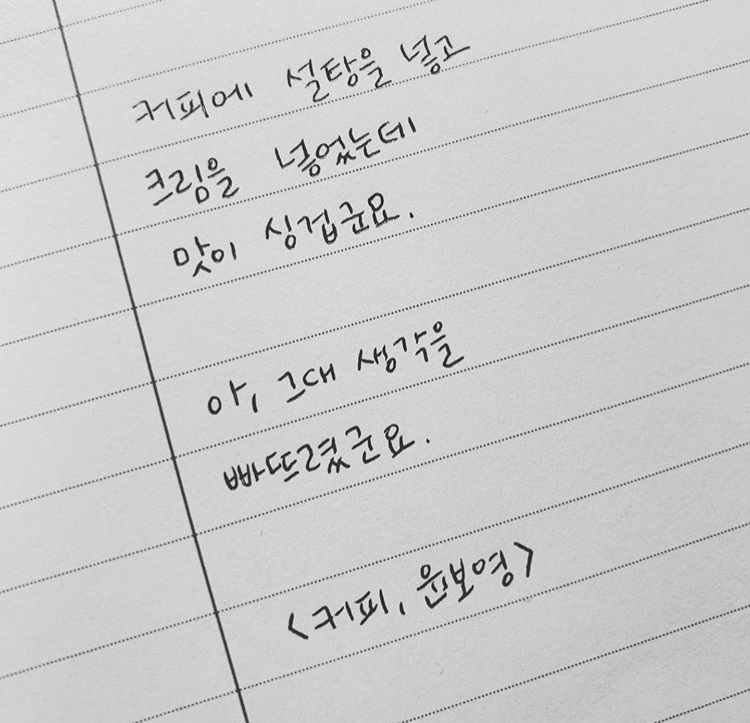 커피에 설탕을 넣고
크림을 넣었는데
맛이 싱겁군요.
아, 그대 생각을
빠뜨렸군요.
<커피, 윤보영>